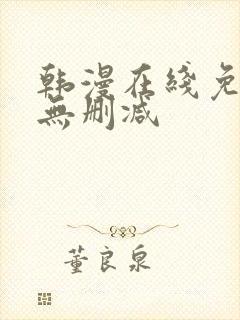 韩漫在线免
無删减
董良泉